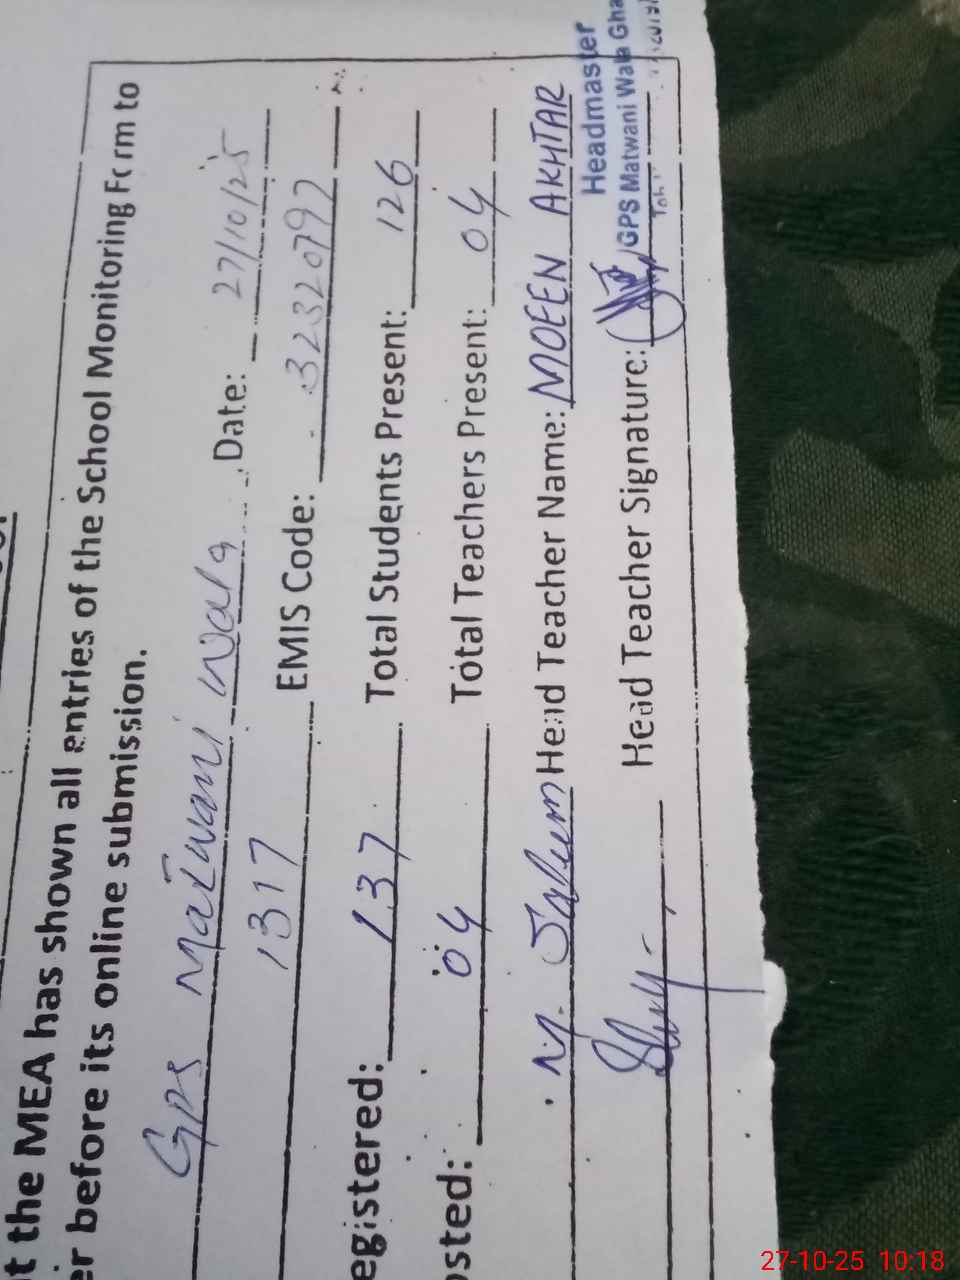 t the MEA has shown all entries of the School Monitoring Form to
er before its online submission.
GPS Matwani Wala Date: 27/10/25
1317 EMIS Code: 32320797
egistered: 137 Total Students Present: 126
osted: 04 Total Teachers Present: 04
M. Saleem Head Teacher Name: MOEEN AKHTAR
Head Teacher Signature:
Headmaster
GPS Matwani Wala Gha
27-10-25 10:18